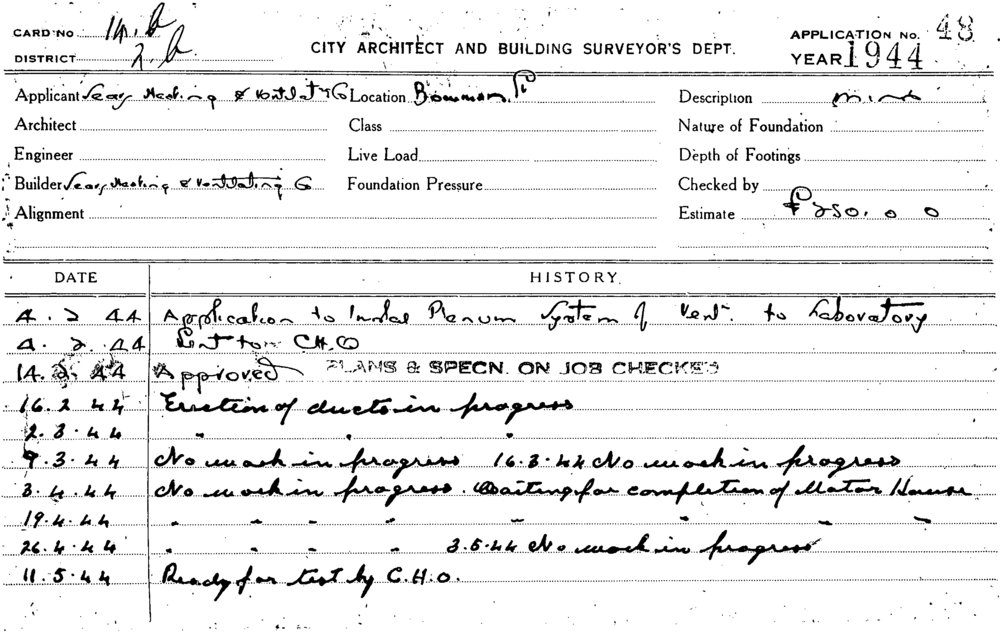 CARD No 14.b
DISTRICT 2.b
CITY ARCHITECT AND BUILDING SURVEYOR'S DEPT.
APPLICATION No. 48
YEAR 1944
Applicant Heating & Ventilatg Co Location Bowman St Description
Architect Class Nature of Foundation
Engineer Live Load Depth of Footings
Builder Heating & Ventilating Co Foundation Pressure Checked by
Alignment Estimate £250. 0 0
DATE HISTORY.
4. 2 44 Application to Instal Plenum System of Vent. to Laboratory
4. 2. 44 Sent to C.H.O
14. 2. 44 Approved PLANS & SPECN. ON JOB CHECKED
16. 2 44 Erection of ducts in progress
2. 3. 44 " " "
9. 3. 44 No work in progress 16.3.44 No work in progress
3. 4. 44 No work in progress. Waiting for completion of Motor House
19. 4. 44 " " " " " " " "
26. 4. 44 " " " " 3.5.44 No work in progress
11. 5. 44 Ready for test by C.H.O.